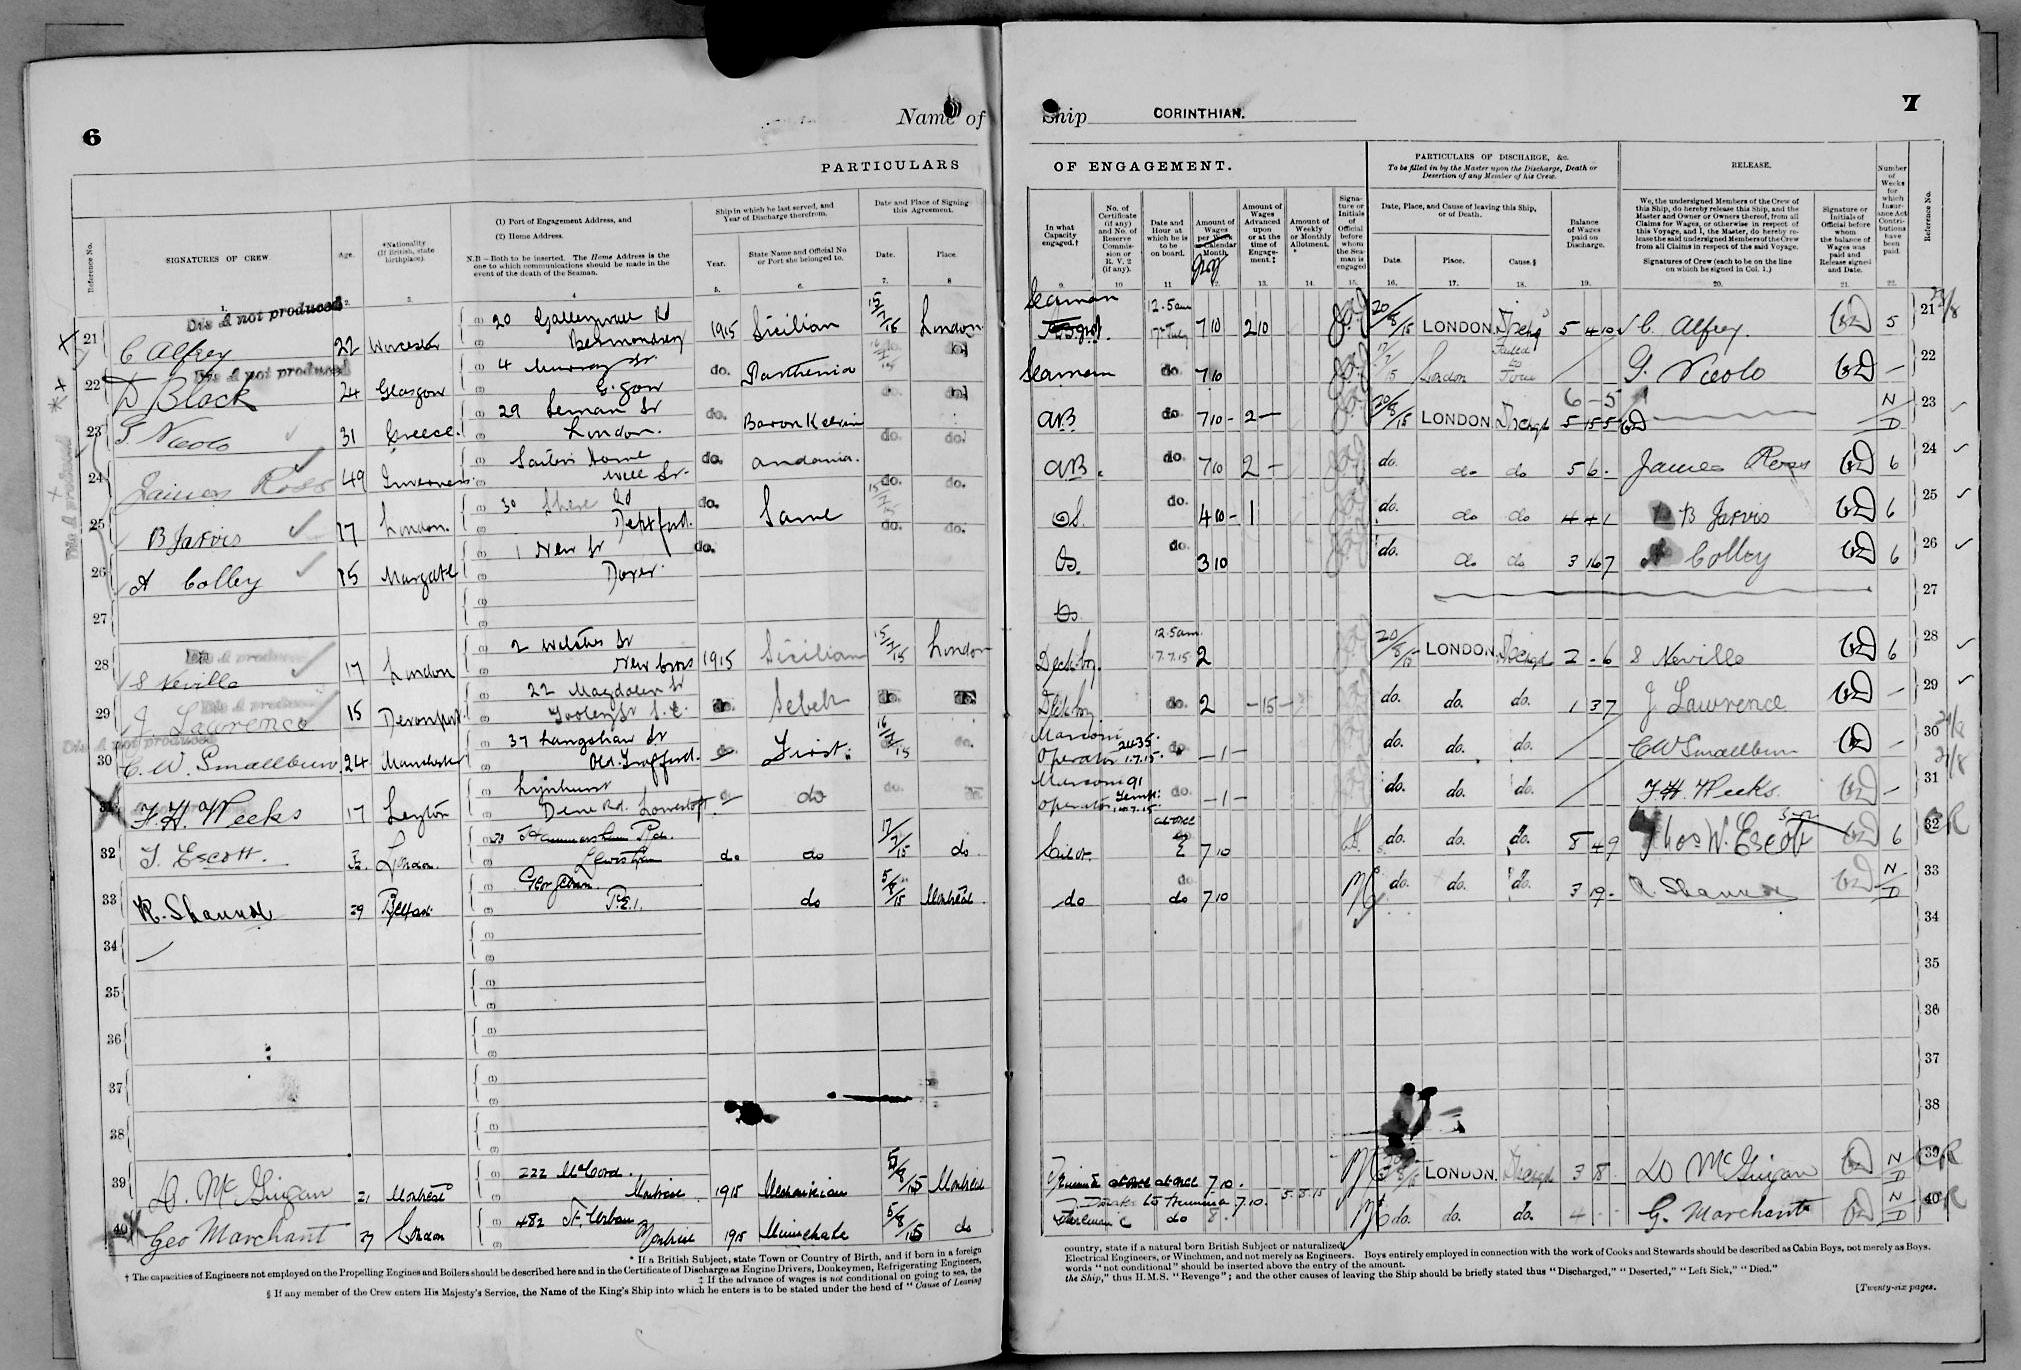 6
Name of
PARTICULARS
Reference No.
SIGNATURES OF CREW
Age.
*Nationality (If British, state birthplace).
(1) Port of Engagement Address, and
(2) Home Address.
N.B—Both to be inserted. The Home Address is the one to which communications should be made in the event of the death of the Seaman.
Ship in which he last served, and Year of Discharge therefrom.
Year.
State Name and Official No or Port she belonged to.
Date and Place of Signing this Agreement.
Date.
Place.
1. 2. 3. 4 5. 6. 7. 8
Dis A not produced
21 C Alfrey 22 Worcester 20 Galleywall Rd Bermondsey 1915 Sicilian 15/7/15 London
Dis A not produced
22 D Black 24 Glasgow 4 Murray St do. Parthenia do. do.
23 G Nicolo 31 Greece. 29 Leman St London. do. Baron Kelvin do. do.
24 James Ross 49 Inverness Sailors Home Well St. do. Andania. do. do.
25 B Jarvis 17 London. 30 Rd Deptford. do. Same 15/7/15 do. do.
26 A Colley 15 Margate 1 New St Dover. do.
27
28 S Neville 17 London 2 St New Cross 1915 Sicilian 15/7/15 London
29 J Lawrence 15 Devonport 22 Magdalen St Tooley St S.E. do. Sebek do. do.
Dis A not produced
30 C. W. Smallburn 24 Manchester 37 Langshaw St Old Trafford. First. 16/7/15 do.
31 F. H. Weeks 17 Leyton Lynhurst Dene Rd. Lowestoft do do
32 T. Escott. London. Rd. Lewisham do do 17/7/15 do.
33 R. Shannon 39 Belfast Georgetown. P.E.I. do 5/8/15 Montreal.
34
35
36
37
38
39 D. McGuigan 21 Montreal 222 McCord. Montreal 1915 5/8/15 Montreal
40 Geo Marchant 39 London 482 St. Urbain Montreal 1915 5/8/15 do
* If a British Subject, state Town or Country of Birth, and if born in a foreign
† The capacities of Engineers not employed on the Propelling Engines and Boilers should be described here and in the Certificate of Discharge as Engine Drivers, Donkeymen, Refrigerating Engineers,
‡ If the advance of wages is not conditional on going to sea, the
§ If any member of the Crew enters His Majesty's Service, the Name of the King's Ship into which he enters is to be stated under the head of "Cause of Leaving
7
Ship CORINTHIAN.
OF ENGAGEMENT.
PARTICULARS OF DISCHARGE, &c.
To be filled in by the Master upon the Discharge, Death or Desertion of any Member of his Crew.
RELEASE.
In what Capacity engaged.†
No. of Certificate (if any) and No. of Reserve Commission or R.V.2 (if any).
Date and Hour at which he is to be on board.
Amount of Wages per Calendar Month.
Amount of Wages Advanced upon or at the time of Engagement.‡
Amount of Weekly or Monthly Allotment. *
Signature or Initials of Official before whom the Seaman is engaged
Date, Place, and Cause of leaving this Ship, or of Death.
Date.
Place.
Cause.§
Balance of Wages paid on Discharge.
We, the undersigned Members of the Crew of this Ship, do hereby release this Ship, and the Master and Owner or Owners thereof, from all Claims for Wages, or otherwise in respect of this Voyage, and I, the Master, do hereby release the said undersigned Members of the Crew from all Claims in respect of the said Voyage.
Signatures of Crew (each to be on the line on which he signed in Col. 1.)
Signature or Initials of Official before whom the balance of Wages was paid and Release signed and Date.
Number of Weeks for which Insurance Act Contributions have been paid.
Reference No.
9. 10 11 12. 13. 14. 15. 16. 17. 18. 19. 20. 21. 22.
Seaman 12.5am 7 10 2 10 20/8/15 LONDON. Dischgd 5 4 10 C. Alfrey. 5 21
Seaman do. 7 10 17/7/15 London Failed to Join G. Nicolo 22
6 - 5
AB do. 7 10 - 2 - 20/8/15 LONDON Dischgd 5 15 5 N/D 23
AB. do. 7 10 2 - do. do do 5 6 . James Ross 6 24
OS. do. 4 10 - 1 do. do do 4 4 1 B Jarvis 6 25
OS. do. 3 10 do. do do 3 16 7 A Colley 6 26
Os 27
Deck boy. 12.5am. 17.7.15 2 20/8/15 LONDON. Dischgd 2 - 6 S Neville 6 28
Deck boy do. 2 - 15 - do. do. do. 1 3 7 J Lawrence 29
Marconi Operator 2435 1.7.15 - 1 - do. do. do. C W Smallburn 30
Marconi Operator 91 Temp: do. - 1 - do. do. do. F. H. Weeks. 31
Sailor at once 7 10 do. do. do. 8 4 9 Thos W. Escott 6 32
do do 7 10 do. do. do. 3 19 - R. Shannon N/D 33
34
35
36
37
38
at once 7 10. LONDON. Dischgd 3 8 - D McGuigan N/D 39
to Trimmer 7.10. 5.8.15
do 8. do. do. do. 4 - - G. Marchant N/D 40
country, state if a natural born British Subject or naturalized.
Electrical Engineers, or Winchmen, and not merely as Engineers. Boys entirely employed in connection with the work of Cooks and Stewards should be described as Cabin Boys, not merely as Boys.
words "not conditional" should be inserted above the entry of the amount.
the Ship," thus H.M.S. "Revenge"; and the other causes of leaving the Ship should be briefly stated thus "Discharged," "Deserted," "Left Sick," "Died."
[Twenty-six pages.